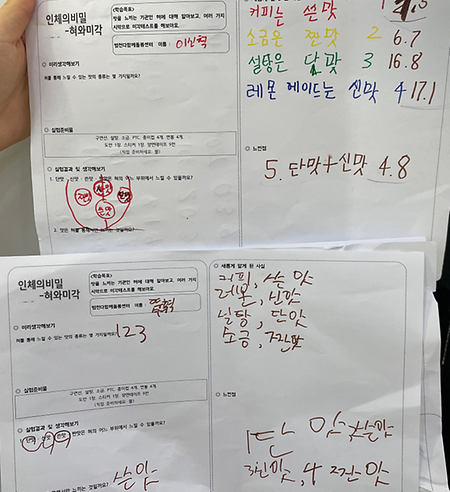 인체의비밀
-혀와미각
<학습목표>
맛을 느끼는 기관인 혀에 대해 알아보고, 여러 가지
시약으로 미각테스트를 해보아요.
이름
이신혁
◎ 미리생각해보기
혀를 통해 느낄 수 있는 맛의 종류는 몇 가지일까요?
◎ 실험준비물
구연산, 설탕, 소금, PTC, 종이컵 4개, 면봉 4개,
도안 1장, 스티커 1장, 양면테이프 9칸
(직접 준비하세요: 물)
◎ 실험결과 및 생각해보기
1. 단맛, 신맛, 짠맛, 쓴맛은 혀의 어느 부위에서 느낄 수 있을까요?
쓴맛
2. 맛은 혀를 통해서만 느끼는 것일까요?
커피는 쓴맛
소금은 짠맛 2 6.7
설탕은 단맛 3 16.8
레몬 에이드는 신맛 4 17.1
◎ 느낀점
5. 단맛+신맛 4.8
인체의비밀
-혀와미각
<학습목표>
맛을 느끼는 기관인 혀에 대해 알아보고, 여러 가지
시약으로 미각테스트를 해보아요.
이름
◎ 미리생각해보기
혀를 통해 느낄 수 있는 맛의 종류는 몇 가지일까요?
123
◎ 실험준비물
구연산, 설탕, 소금, PTC, 종이컵 4개, 면봉 4개,
도안 1장, 스티커 1장, 양면테이프 9칸
(직접 준비하세요: 물)
◎ 실험결과 및 생각해보기
1. 단맛, 신맛, 짠맛, 쓴맛은 혀의 어느 부위에서 느낄 수 있을까요?
쓴맛
◎ 새롭게 알게 된 사실
커피, 쓴 맛
레몬, 신맛
설탕, 단맛
소금, 짠맛
◎ 느낀점
단 맛
짠 맛